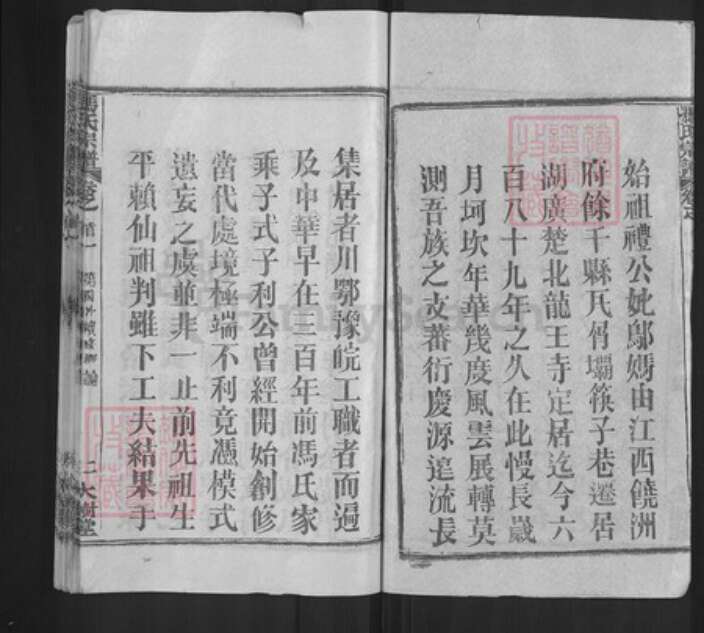 始祖禮公妣鄔媽由江西饒洲
府餘干縣瓦屑壩筷子巷遷居
湖廣楚北龍王寺定居迄今六
百八十九年之久在此慢長歲
月坷坎年華幾度風雲展轉莫
測吾族之支蕃衍慶源遠流長
集居者川鄂豫皖工職者而遍
及中華早在三百年前馮氏家
乘子式子利公曾經開始創修
當代處境極端不利竟憑模式
遺妄之虞並非一止前先祖生
平賴仙祖判雖下工夫結果手
馮氏宗譜
卷之首一
二
大樹堂